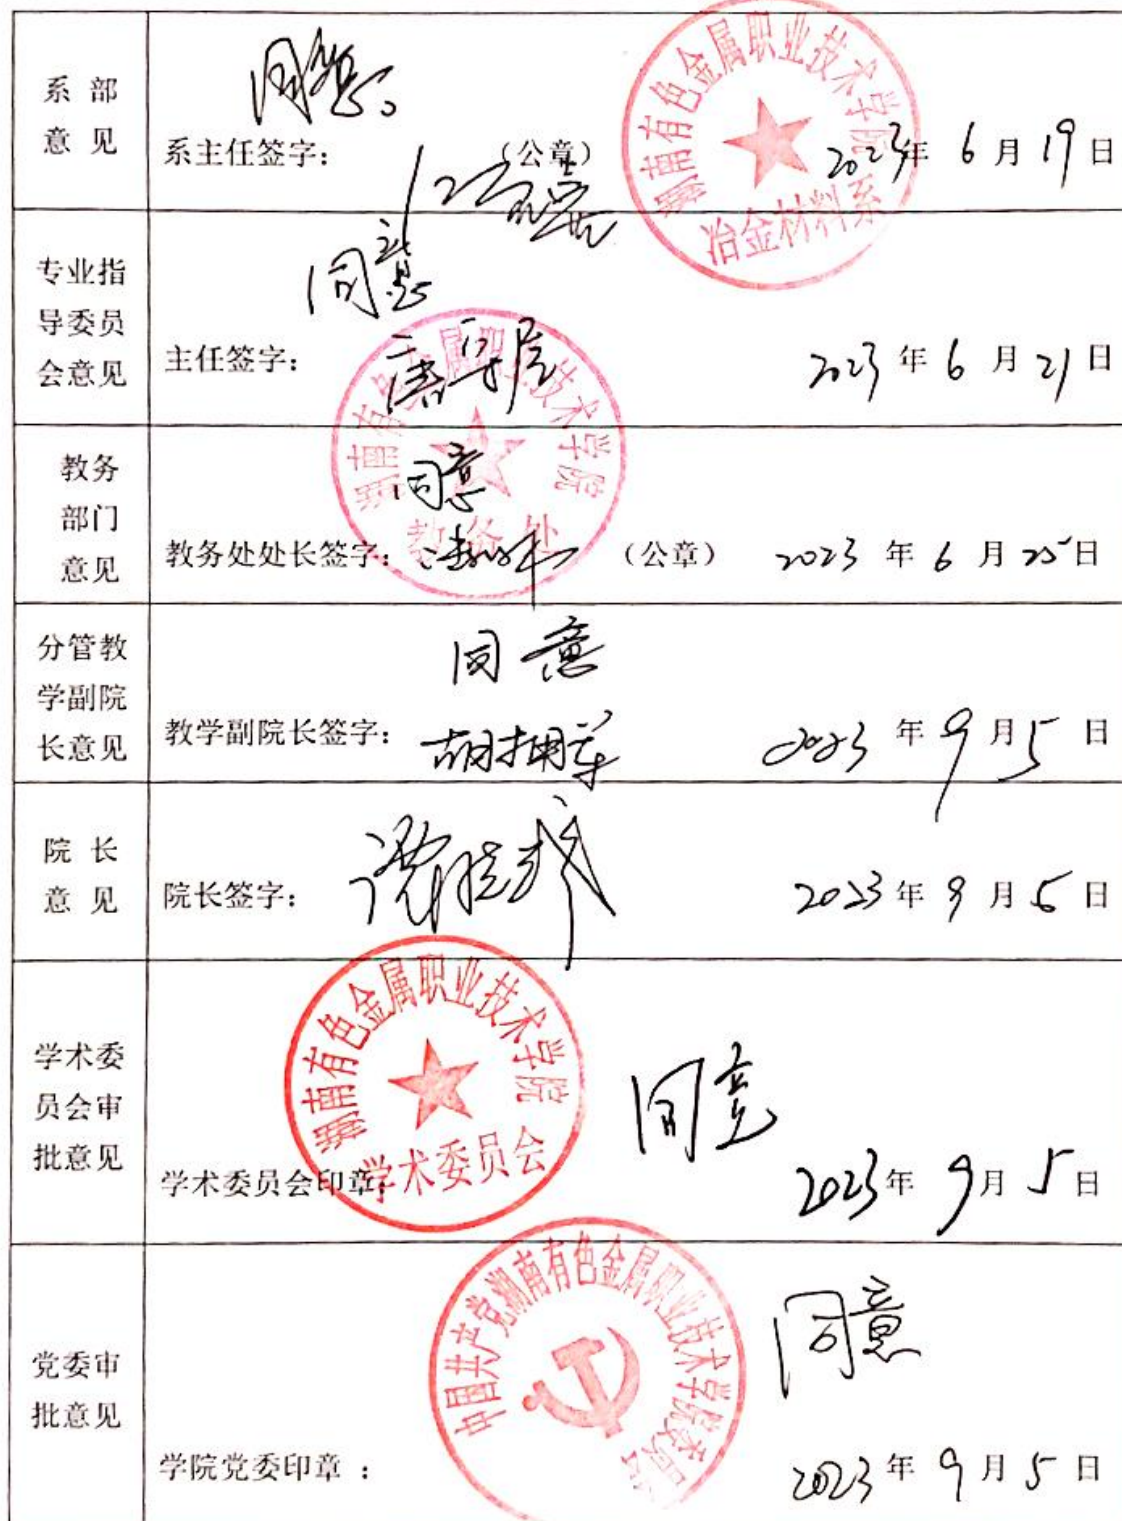 系部
意见
同意
系主任签字：
（公章）
2023年 6 月 19 日
湖南有色金属职业技术学院
冶金材料系
专业指
导委员
会意见
同意
主任签字：
2023 年 6 月 21 日
教务
部门
意见
湖南有色金属职业技术学院
教务处
同意
教务处处长签字：
（公章）
2023 年 6 月 25 日
分管教
学副院
长意见
同意
教学副院长签字：
胡拥军
2023 年 9 月 5 日
院长
意见
院长签字：
2023 年 9 月 5 日
学术委
员会审
批意见
湖南有色金属职业技术学院
学术委员会
同意
学术委员会印章：
2023年 9月 5 日
党委审
批意见
中国共产党湖南有色金属职业技术学院委员会
同意
学院党委印章 ：
2023 年 9 月 5 日